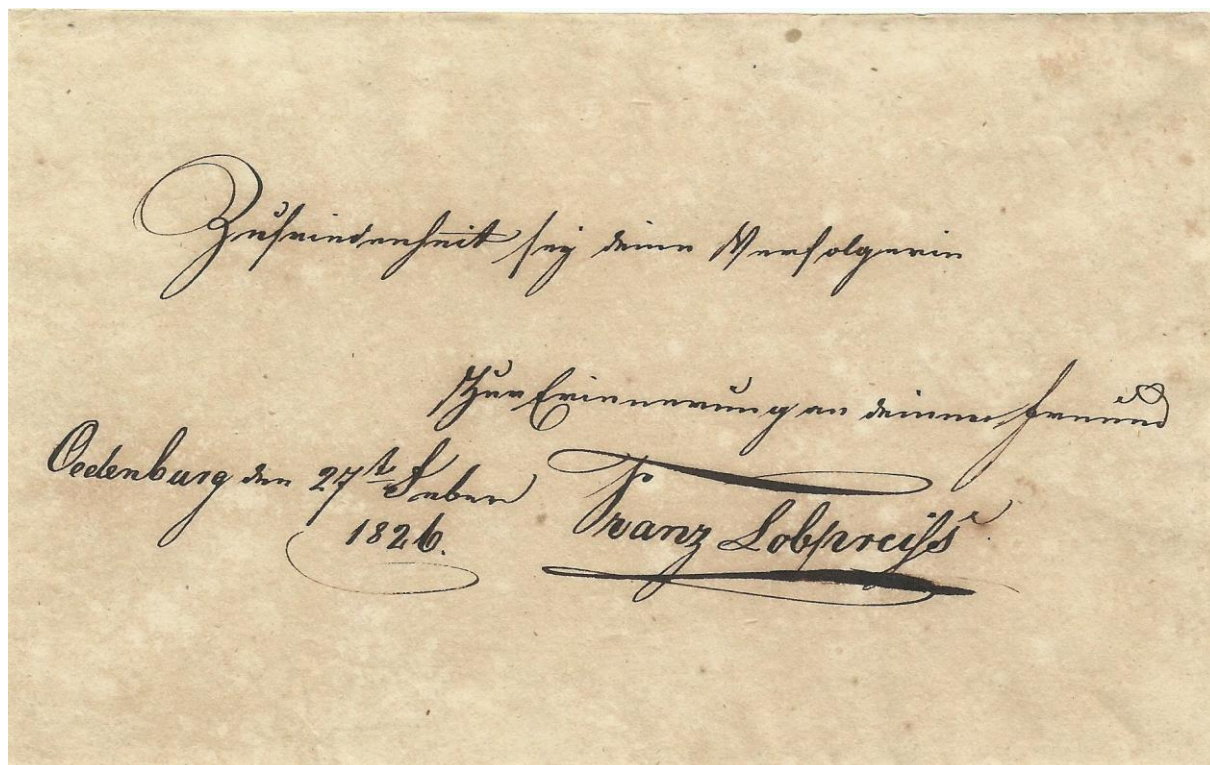 Zufriedenheit sey deine Verfolgerin
Zur Erinnerung an deinen Freund
Oedenburg den 27t Feber Franz Lobpreiss
1826.